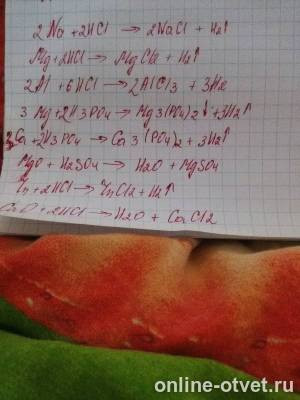 2 Na + 2HCl → 2NaCl + H2↑
Mg + 2HCl → MgCl2 + H2↑
2Al + 6HCl → 2AlCl3 + 3H2
3 Mg + 2H3PO4 → Mg3(PO4)2↓ + 3H2↑
3Ca + 2H3PO4 → Ca3(PO4)2 + 3H2↑
MgO + H2SO4 → H2O + MgSO4
Zn + 2HCl → ZnCl2 + H2↑
CaO + 2HCl → H2O + CaCl2
online-otvet.ru